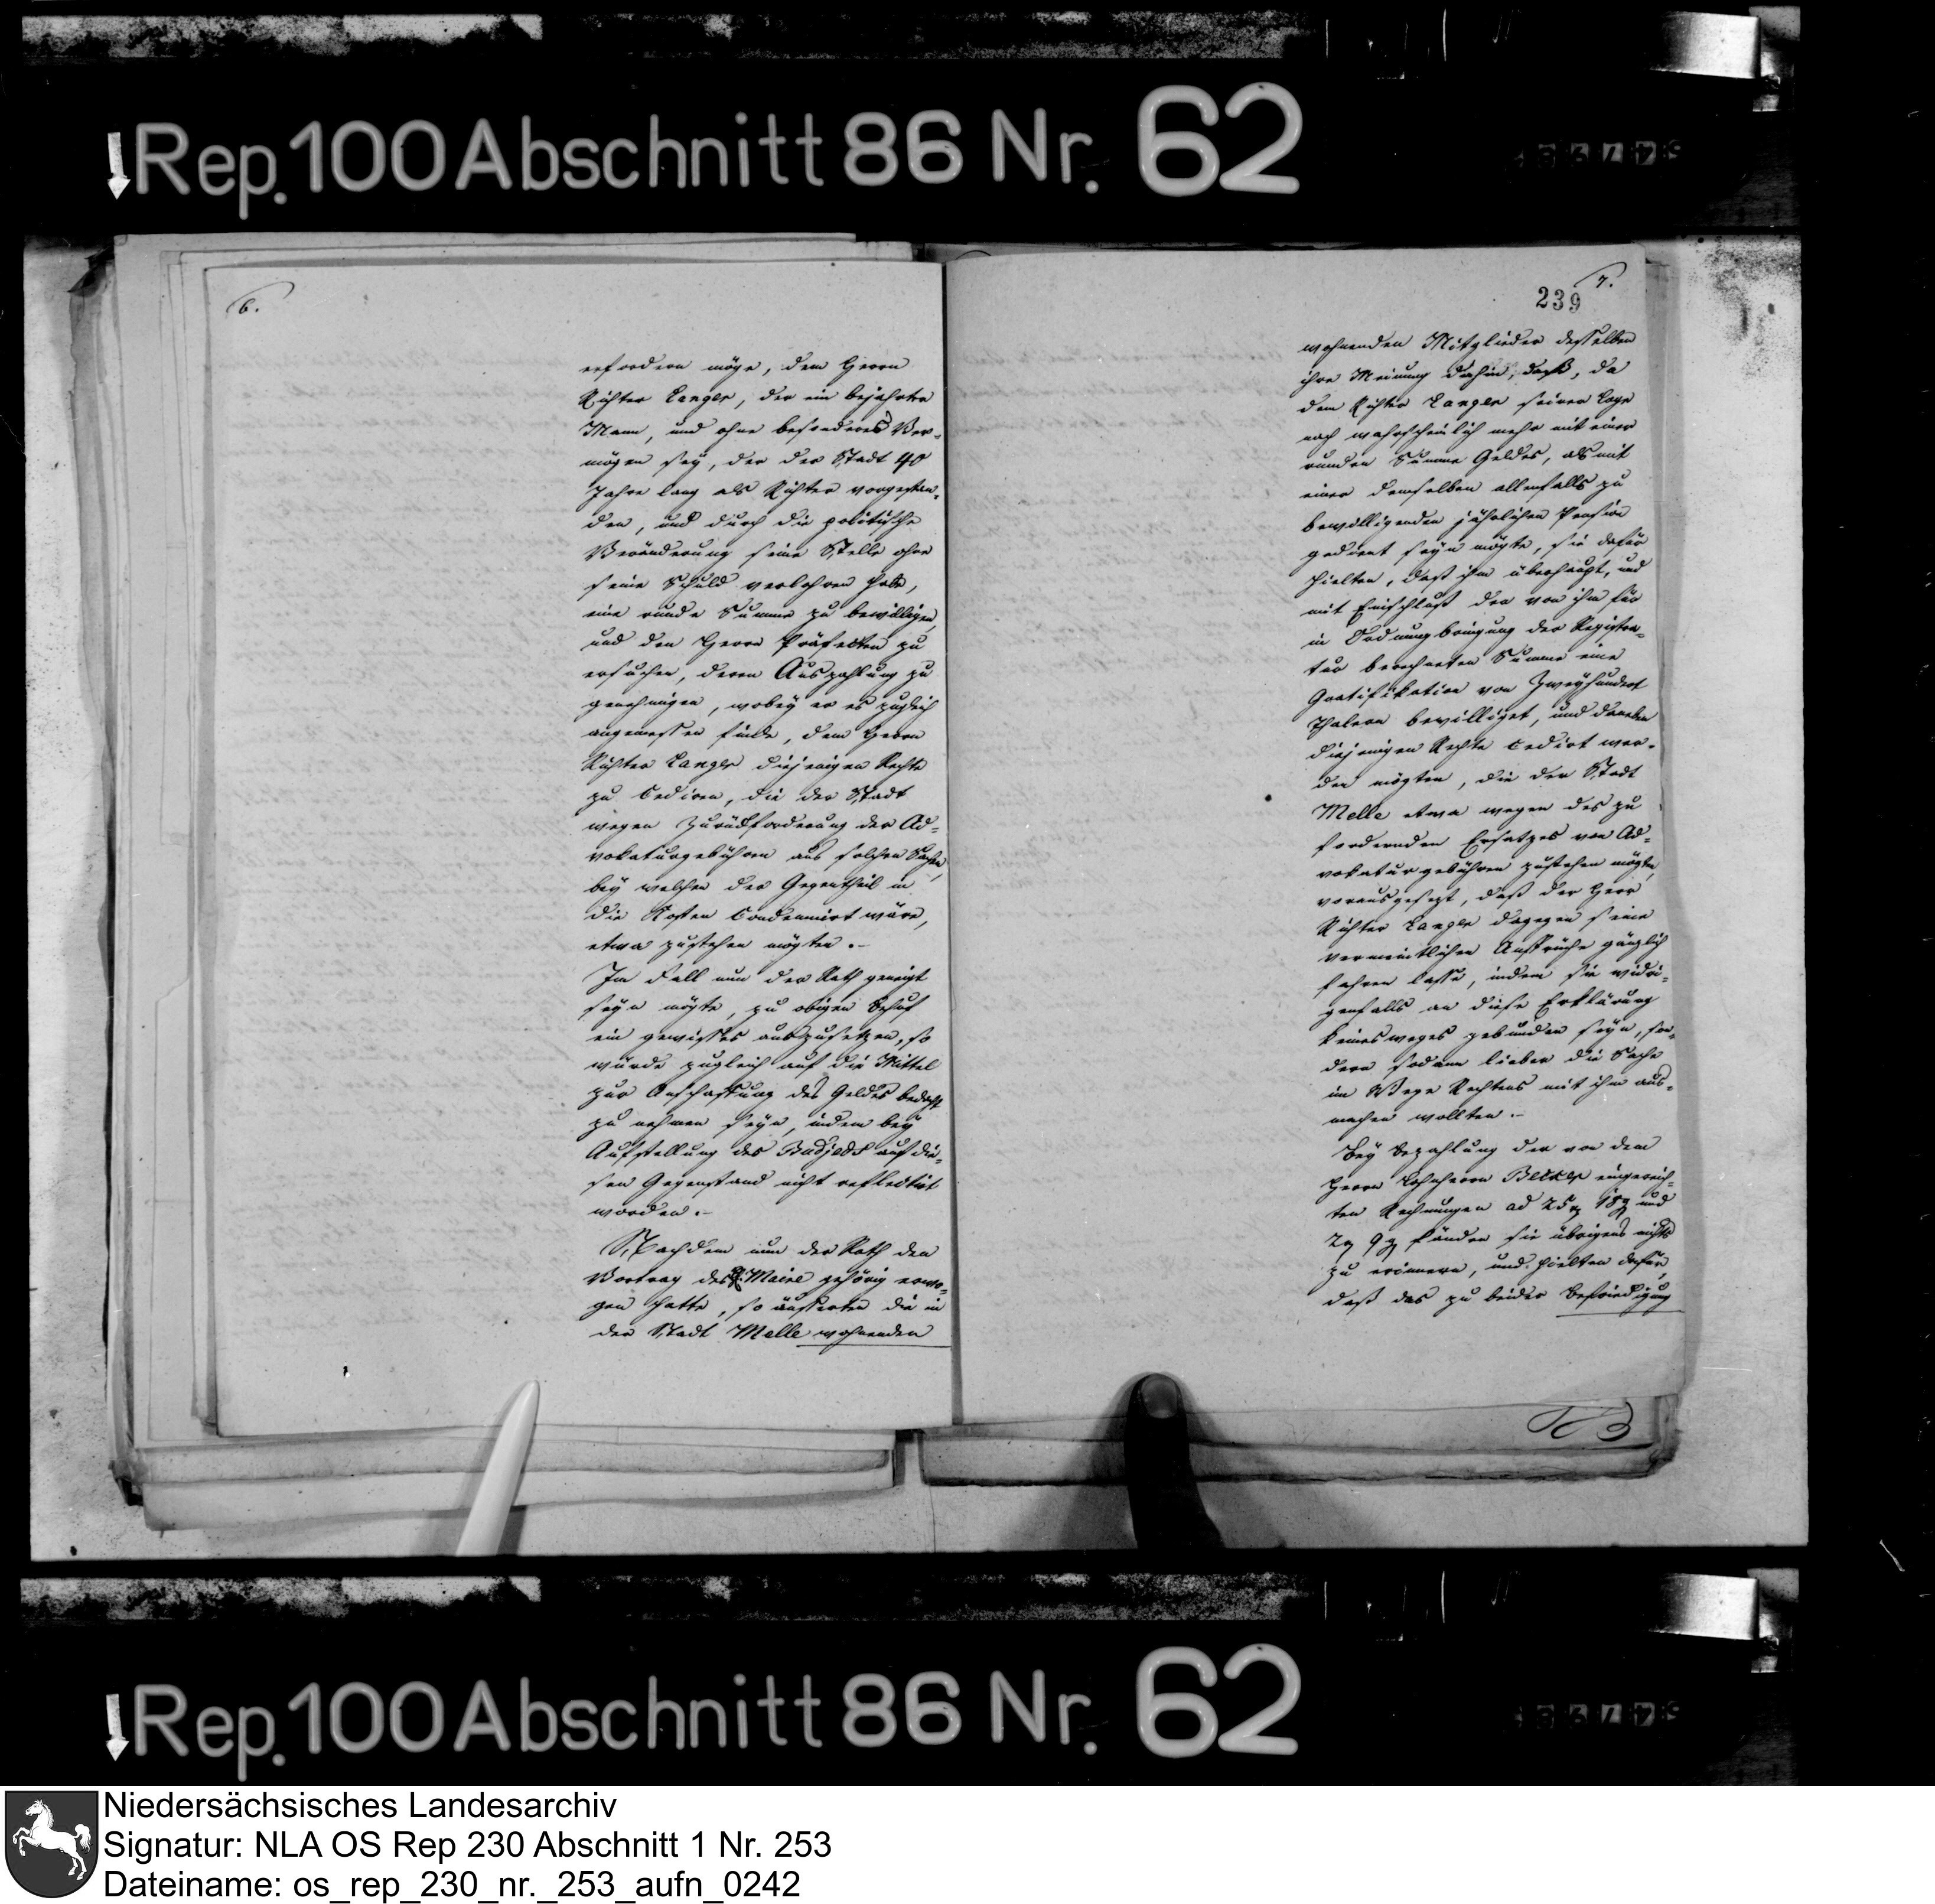 Rep. 100 Abschnitt 86 Nr. 62
6.
erfordern möge, dem Herrn
Richter Langer, der ein bejahrter
Mann, und ohne besonderes Ver-
mögen sey, der der Stadt 40
Jahre lang als Richter vorgestan-
den, und durch die politische
Veränderung seine Stelle ohne
seine Schuld verlohren habe,
eine runde Summe zu bewilligen,
und den Herrn Präfekten zu
ersuchen, deren Auszahlung zu
genehmigen, wobey er es zugleich
angemessen finde, dem Herrn
Richter Langer diejenigen Rechte
zu cediren, die der Stadt
wegen Zurückforderung der Ad-
vokaturgebühren aus solchen Sachen,
bey welchen der Gegentheil in
die Kosten condemnirt wäre,
etwa zustehen mögten.-
Im Fall nun der Rath geneigt
seyn mögte, zu obigem Behuf
ein gewisses auszusetzen, so
würde zugleich auf die Mittel
zur Anschaffung des Geldes bedacht
zu nehmen seyn, indem bey
Aufstellung des Budjets auf die-
sen Gegenstand nicht reflectirt
worden.-
Nachdem nun der Rath den
Vortrag des Maire gehörig erwo-
gen hatte, so äusserten die in
der Stadt Melle wohnenden
7.
239
wohnenden Mitglieder desselben
ihre Meinung dahin, daß, da
dem Richter Langer seiner Lage
nach wahrscheinlich mehr mit einer
runden Summe Geldes, als mit
einer demselben allenfalls zu
bewilligenden jährlichen Pension
gedient seyn mögte, sie dafür
hielten, daß ihm überhaupt, und
mit Einschluß der von ihm für
in Ordnungbringung der Registra-
tur berechneten Summe eine
Gratifikation von Zweyhundert
Thalern bewilliget, und daneben
diejenigen Rechte cedirt wer-
den mögten, die der Stadt
Melle etwa wegen des zu
fordernden Ersatzes von Ad-
vokaturgebühren zustehen mögten,
vorausgesezt, daß der Herr
Richter Langer dagegen seine
vermeintlichen Ansprüche gänzlich
fahren lasse, indem sie widri-
genfalls an diese Erklärung
keinesweges gebunden seyn, son-
dern sodann lieber die Sache
im Wege Rechtens mit ihm aus-
machen wollten.-
Bey Bezahlung der von dem
Herrn Becker eingereich-
ten Rechnungen ad 25 18 und
2 9 fänden sie übrigens nichts
zu erinnern, und hielten dafür,
daß das zu beider Befriedigung
Rep. 100 Abschnitt 86 Nr. 62
Niedersächsisches Landesarchiv
Signatur: NLA OS Rep 230 Abschnitt 1 Nr. 253
Dateiname: os_rep_230_nr._253_aufn_0242